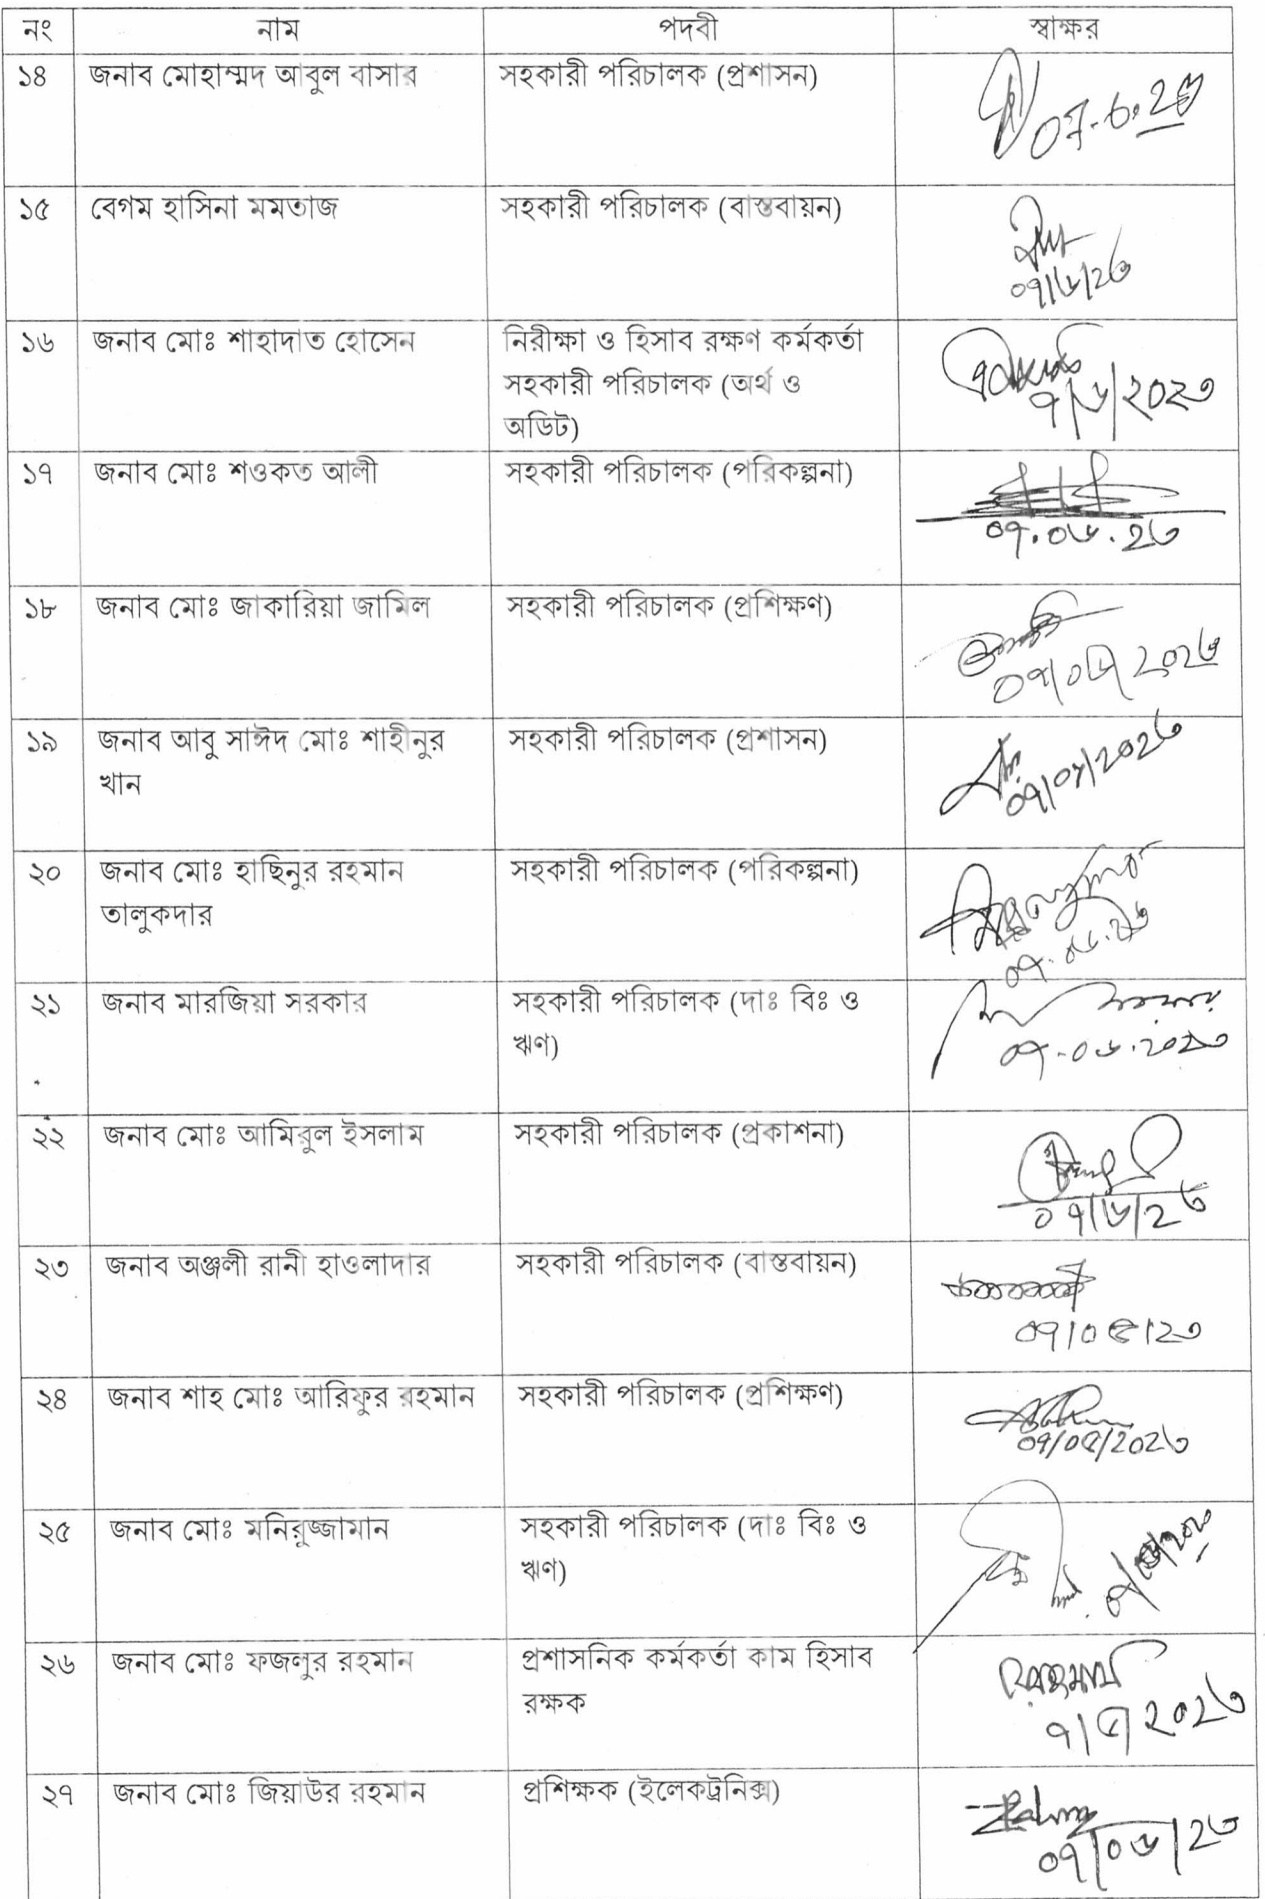 নং নাম পদবী স্বাক্ষর
১৪ জনাব মোহাম্মদ আবুল বাসার সহকারী পরিচালক (প্রশাসন)
০৭.৬.২৩
১৫ বেগম হাসিনা মমতাজ সহকারী পরিচালক (বাস্তবায়ন)
০৭/৬/২৩
১৬ জনাব মোঃ শাহাদাত হোসেন নিরীক্ষা ও হিসাব রক্ষণ কর্মকর্তা
সহকারী পরিচালক (অর্থ ও
৭/৬/২০২৩
অডিট)
১৭ জনাব মোঃ শওকত আলী সহকারী পরিচালক (পরিকল্পনা)
০৭.০৬.২৩
১৮ জনাব মোঃ জাকারিয়া জামিল সহকারী পরিচালক (প্রশিক্ষণ)
০৭/০৬/২০২৩
১৯ জনাব আবু সাঈদ মোঃ শাহীনুর সহকারী পরিচালক (প্রশাসন)
খান
২০ জনাব মোঃ হাছিনুর রহমান সহকারী পরিচালক (পরিকল্পনা)
তালুকদার
০৭.০৬.২৩
২১ জনাব মারজিয়া সরকার সহকারী পরিচালক (দাঃ বিঃ ও
ঋণ)
০৭-০৬-২০২৩
২২ জনাব মোঃ আমিরুল ইসলাম সহকারী পরিচালক (প্রকাশনা)
০৭/৬/২৩
২৩ জনাব অঞ্জলী রানী হাওলাদার সহকারী পরিচালক (বাস্তবায়ন)
২৪ জনাব শাহ মোঃ আরিফুর রহমান সহকারী পরিচালক (প্রশিক্ষণ)
২৫ জনাব মোঃ মনিরুজ্জামান সহকারী পরিচালক (দাঃ বিঃ ও
ঋণ)
২৬ জনাব মোঃ ফজলুর রহমান প্রশাসনিক কর্মকর্তা কাম হিসাব
রক্ষক
২৭ জনাব মোঃ জিয়াউর রহমান প্রশিক্ষক (ইলেকট্রনিক্স)
০৭/০৬/২৩